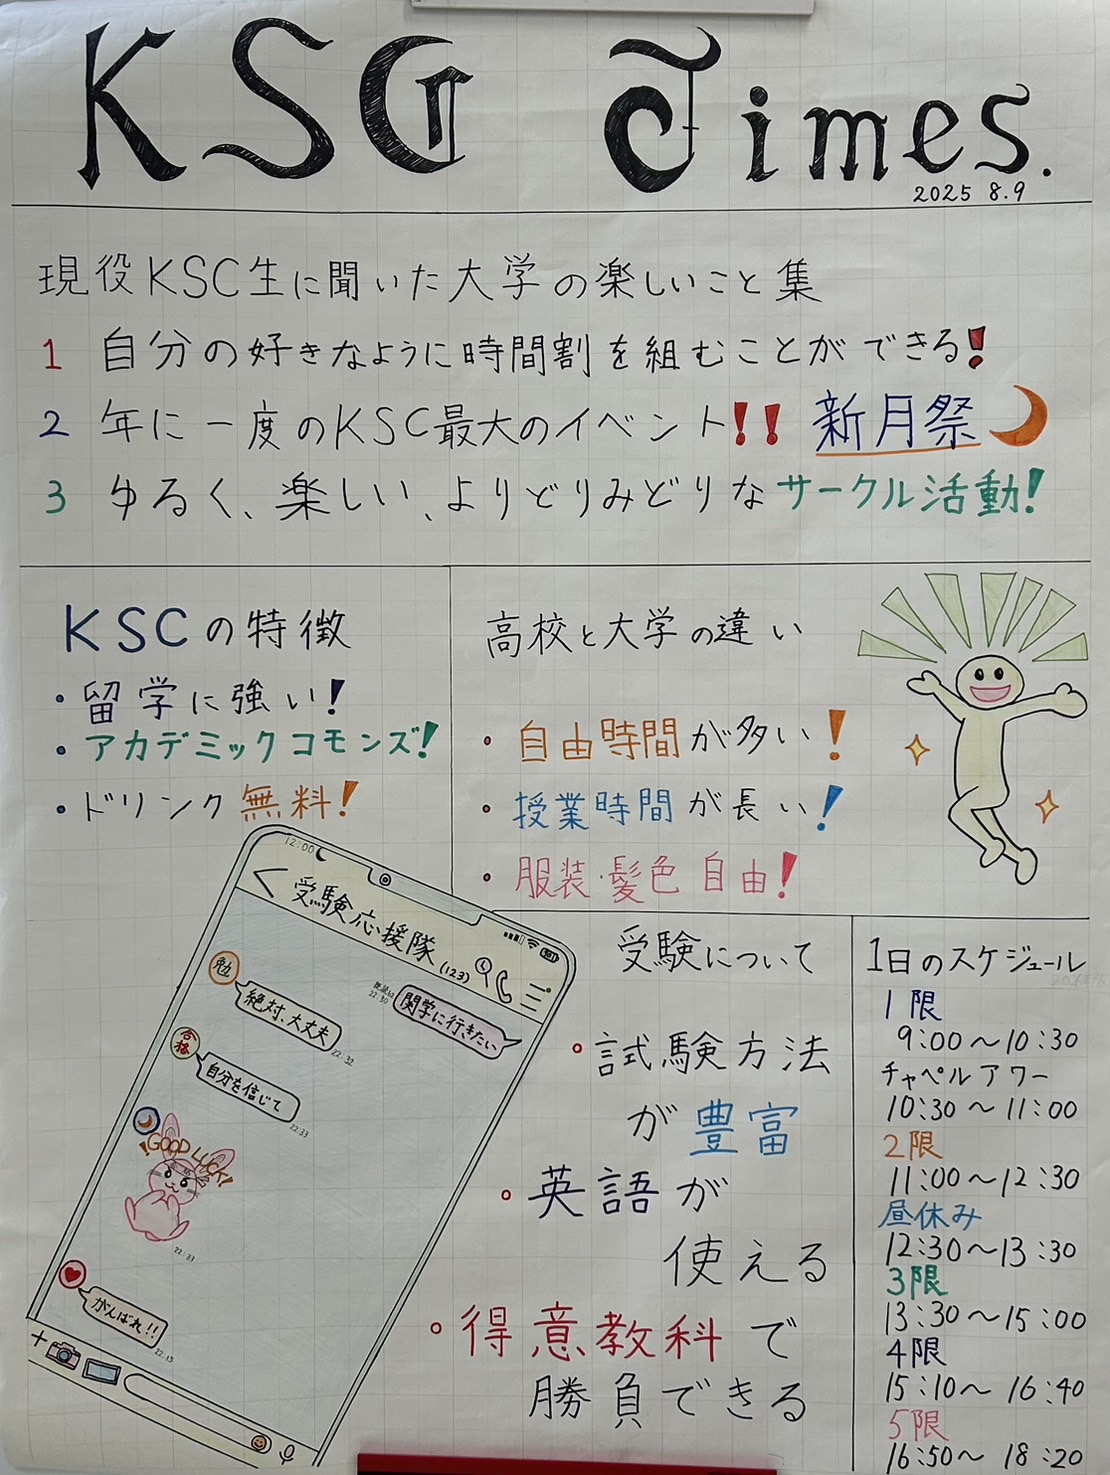 KSG Times.
2025 8.9
現役KSC生に聞いた大学の楽しいこと集
1 自分の好きなように時間割を組むことができる!
2 年に一度のKSC最大のイベント!! 新月祭
3 ゆるく、楽しい、よりどりみどりなサークル活動!
KSCの特徴
・留学に強い!
・アカデミックコモンズ!
・ドリンク無料!
高校と大学の違い
・自由時間が多い!
・授業時間が長い!
・服装・髪色自由!
12:00
受験応援隊(123)
既読
22:30
関学に行きたい
勉
絶対、大丈夫
22:32
合格
自分を信じて
22:33
GOOD LUCK!
22:33
がんばれ!!
受験について
試験方法
が豊富
英語が
使える
得意教科で
勝負できる
1日のスケジュール
1限
9:00〜10:30
チャペルアワー
10:30〜11:00
2限
11:00〜12:30
昼休み
12:30〜13:30
3限
13:30〜15:00
4限
15:10〜16:40
5限
16:50〜18:20